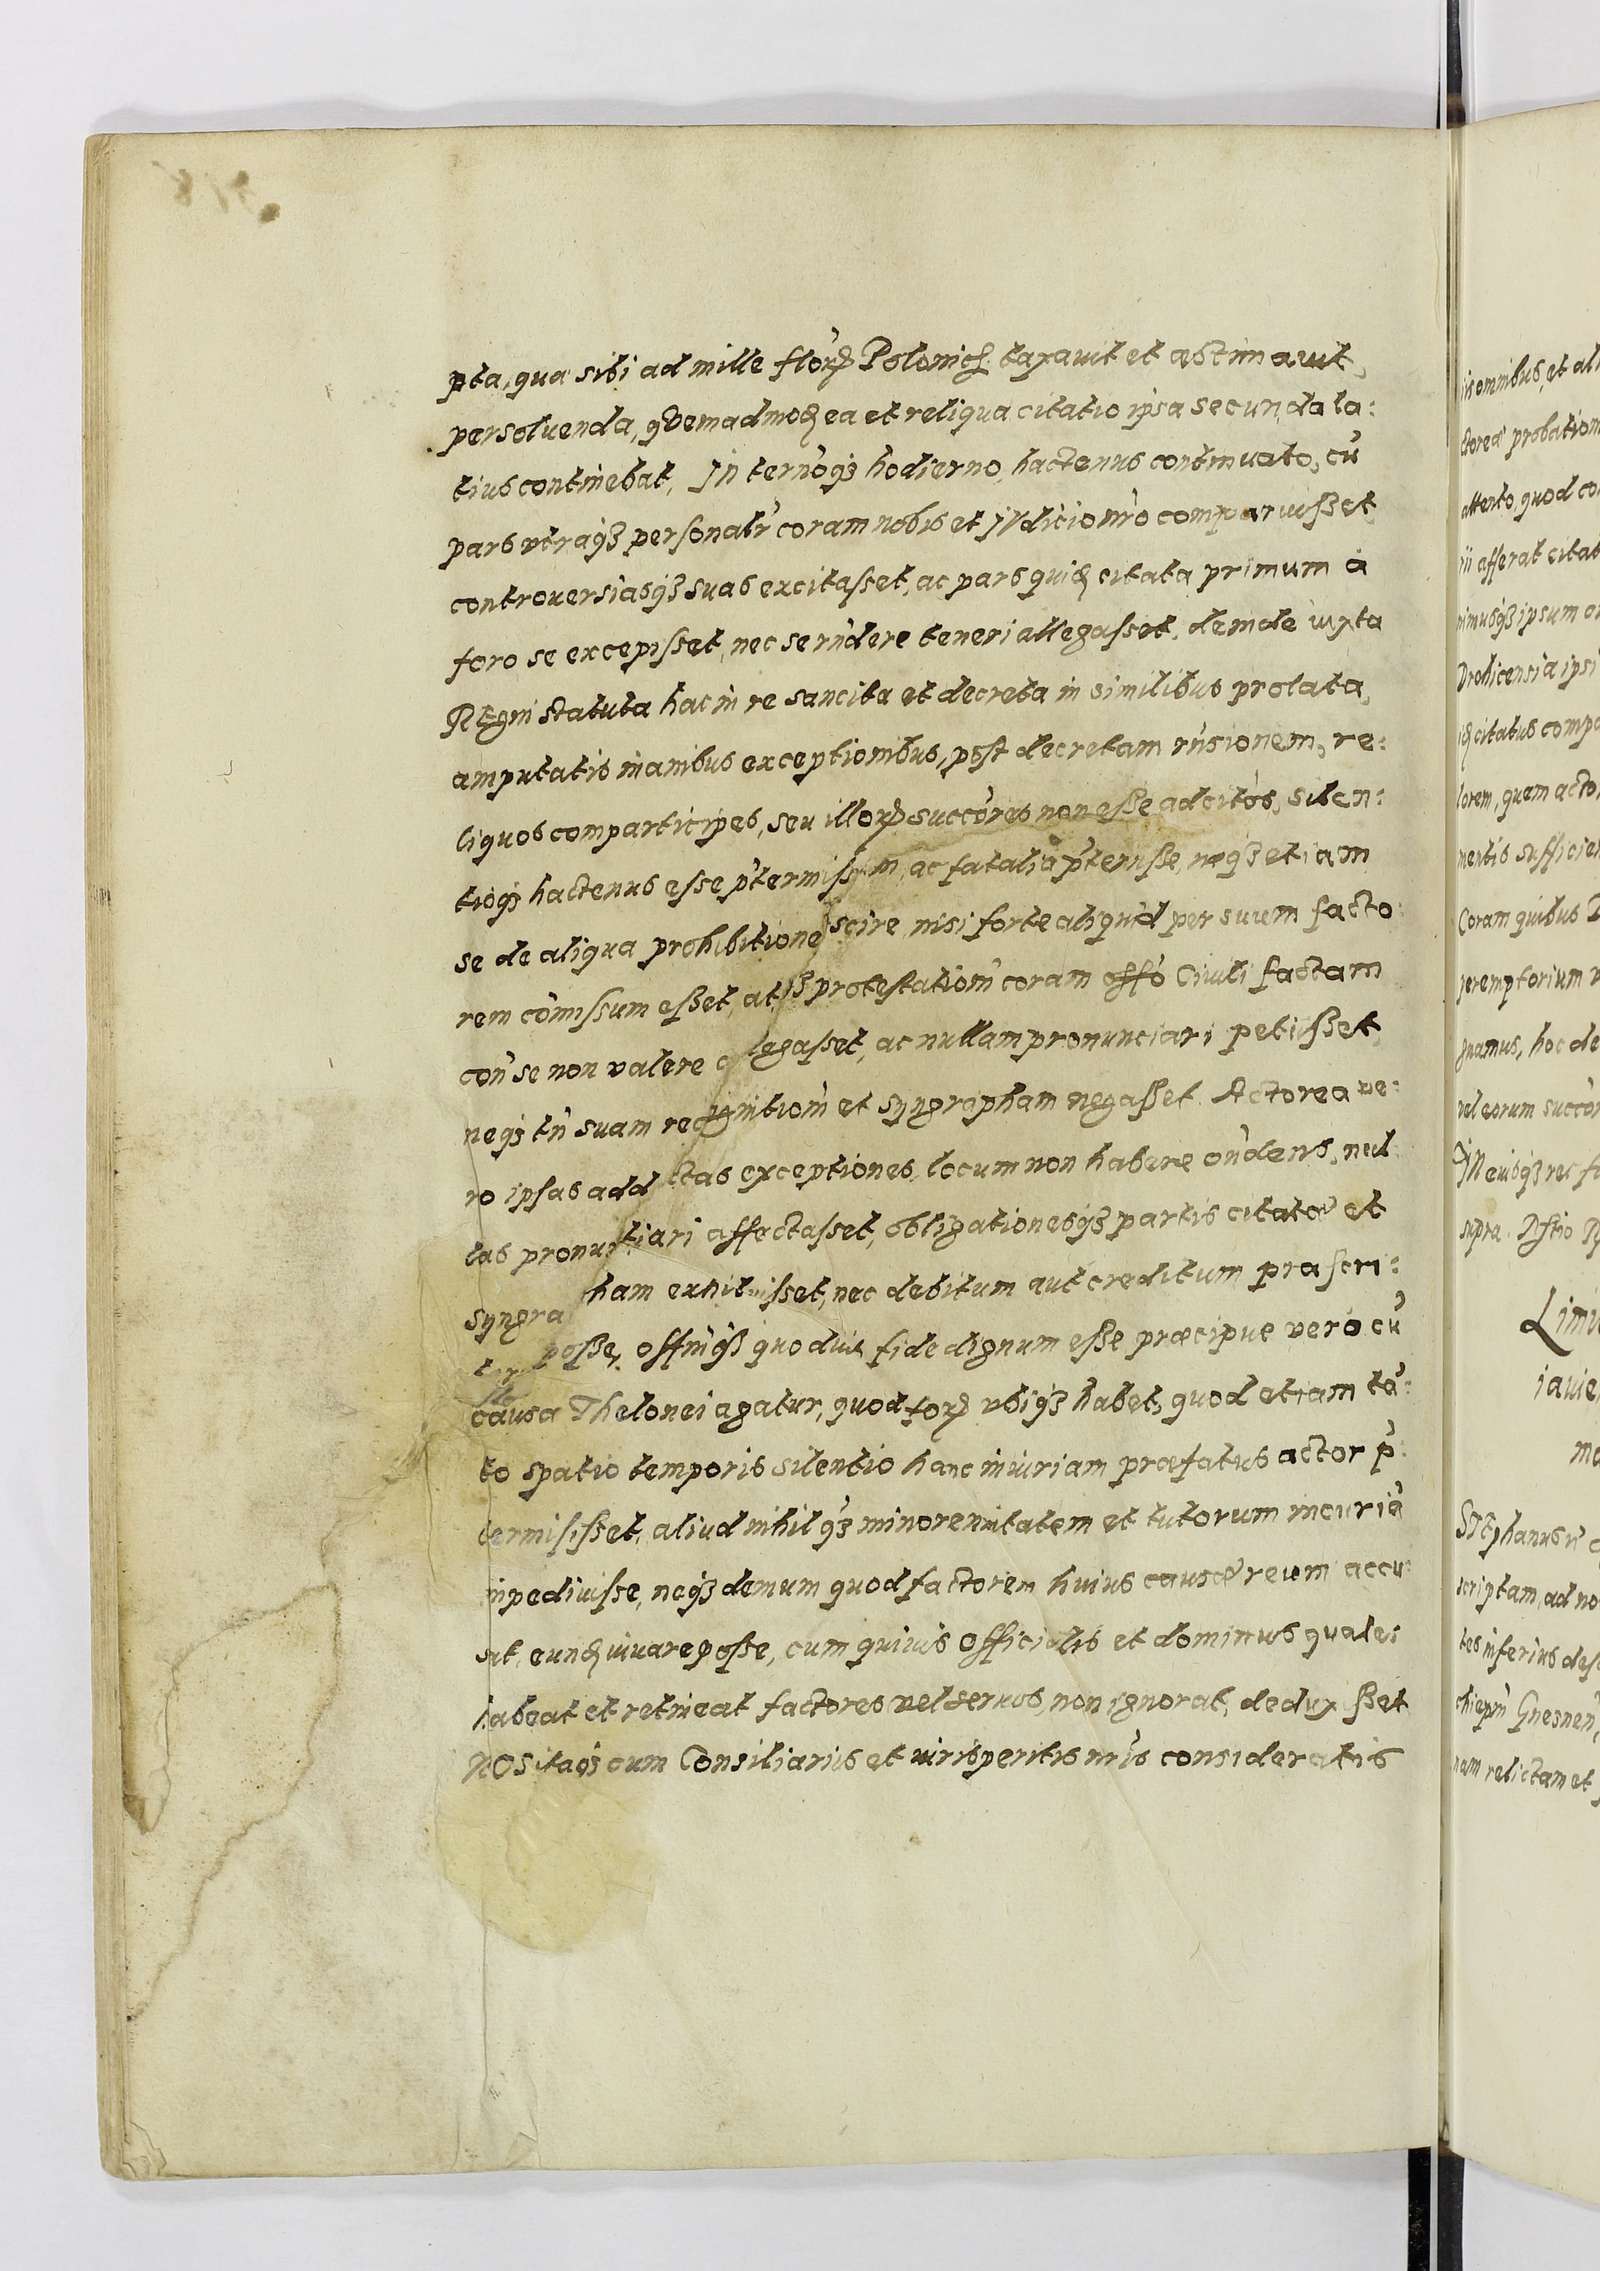 pta, qua sibi ad mille flor̃ Polonic̃ taxauit et æstimauit,
persoluenda, qvemadmod ea et reliqua citatio ipsa secunda la:
tius continebat, In ternoq3 hodierno, hactenus continuato, cũ
pars vtraq3 personalr̃ coram nobis et jvdicio nr̃o comparuisset
controuersiasq3 suas excitasset, ac pars quid citata primum à
foro se excepisset, nec se rñdere teneri allegasset, deinde iuxta
Regni statuta hac in re sancita et decreta in similibus prolata,
amputatis inanibus exceptionibus, post decretam rñsionem, re:
liquos comparticipes, seu illor̃ succ̃ores non esse ad citõs, silen:
tioq3 hactenus esse p̃termissum, ac fatalia p̃terisse, neq3 etiam
se de aliqua prohibitione scire, nisi forte aliquid per suum facto:
rem com̃issum esset, atq3 protestation̄ coram off̃o Ciuili factam
con̄ se non valere allegasset, ac nullam pronunciari petiisset,
neq3 tñ suam recognition̄ et syngrapham negasset. Actorea ve:
ro ipsas add ctas exceptiones, locum non habere on̄dens, nul
las pronuntiari affectasset, obligationesq3 partis citatæ et
syngra ham exhibuisset, nec debitum aut creditum præscri:
posse, offm̃q3 quoduis fide dignum esse præcipue verò cũ
causa Thelonei agatur, quod for̃ vbiq3 habet, quod etiam tã:
to spatio temporis silentio hanc iniuriam præfatus actor p̃:
termisisset, aliud nihil q̃3 minorennitatem et tutorum incuriã
inpediuisse, neq3 demum quod factorem huius causæ reum accu
sat, eund iuuare posse, cum quiuis officialis et dominus quales
habeat et retineat factores vel seruos, non ignorat, deduxisset
NOS itaq3 cum Consiliariis et viris peritis nr̃is consideratis
isomnibus, et ali
ctoreæ probation
attento, quod co
ii afferat citat
nimusq3 ipsum
Drohicensia ipsi
citatus compa
lorem, quem acto
mentis sufficien
Coram quibus
peremptorium
gnamus, hoc de
vel eorum succ̃or
supra
Limi
iauie
ma
STEphanus
scriptam, ad no
tes inferius des
chiepm̃ Gnesnen̄,
nam relictam et